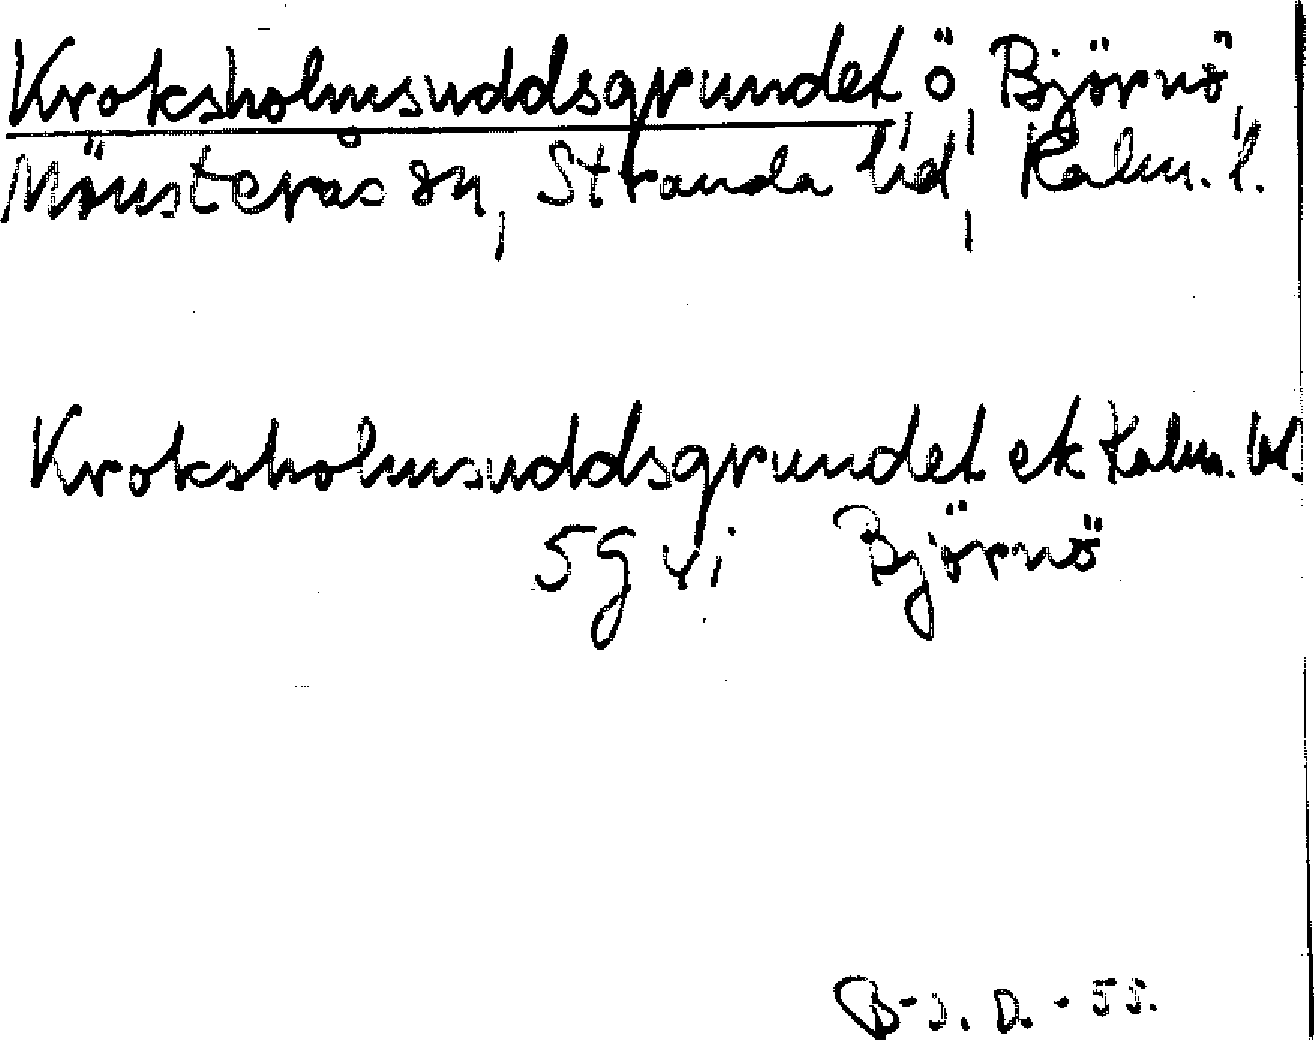 Kroksholmsuddsgrundet, ö, Björnö,
Mönsterås sn, Stranda hd, Kalm. l.
Kroksholmsuddsgrundet ek Kalm.
5g vi Björnö
B-J. D. - 55.